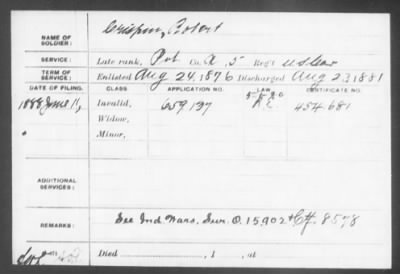 Crispin, Robert
NAME OF SOLDIER:
SERVICE: Late rank, Pvt Co. A, 5 Reg't US Cav
TERM OF SERVICE: Enlisted Aug 24, 1876 Discharged Aug 23 1881
DATE OF FILING. CLASS. APPLICATION NO. LAW CERTIFICATE NO.
1888 June 11, Invalid, 659,137 454,681
Widow,
Minor,
ADDITIONAL SERVICES:
REMARKS: See Ind. Wars, Sur. O. 15902 + Ctf. 8578
Died , 1 , at